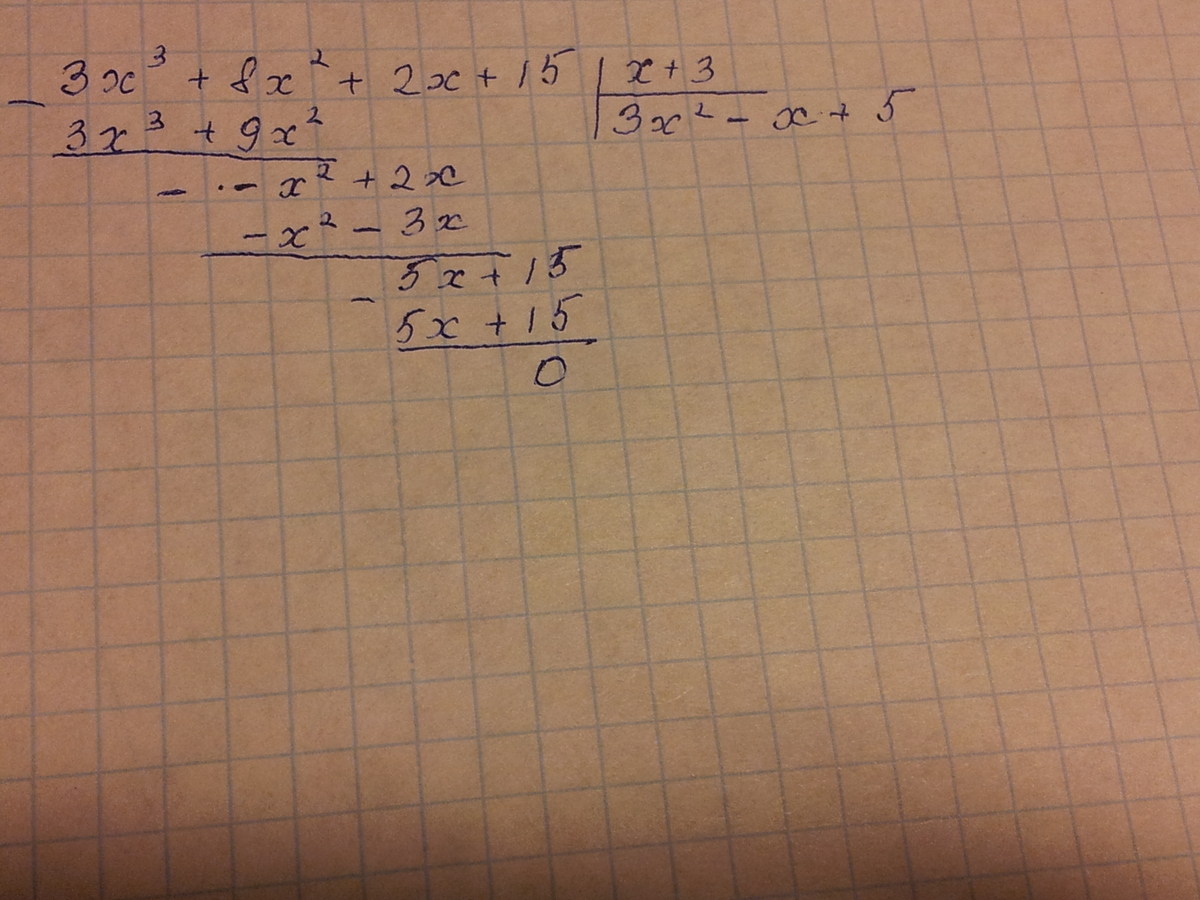 3x³ + 8x² + 2x + 15 | x + 3
− 3x³ + 9x² | 3x² − x + 5
− − x² + 2x
− x² − 3x
− 5x + 15
5x + 15
0